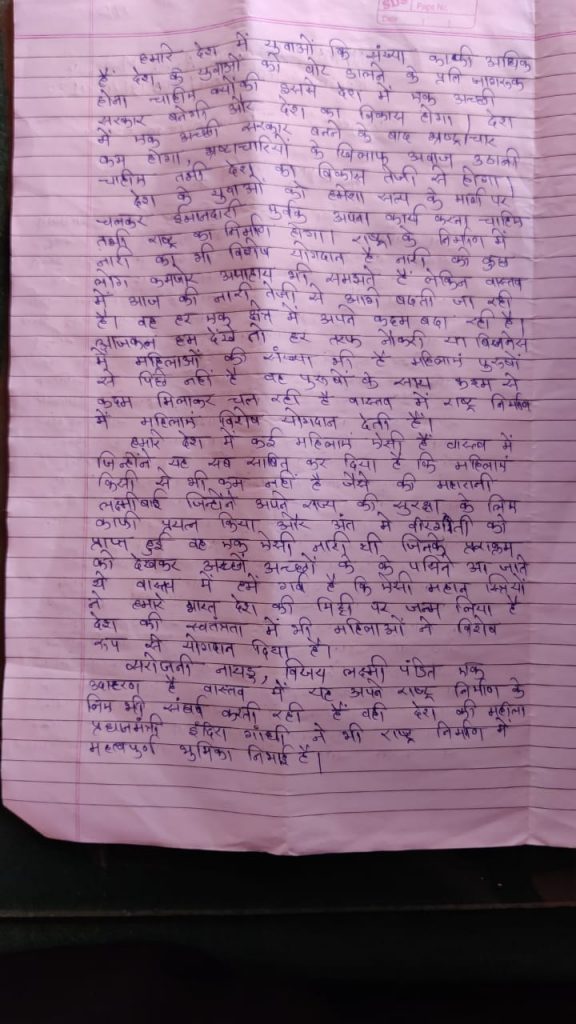 Page No.
Date
हमारे देश में युवाओं कि संख्या काफी अधिक
है देश के युवाओं को वोट डालने के प्रति जागरूक
होना चाहीए क्योंकी इससे देश में एक अच्छी
सरकार बनेगी और देश का विकाय होगा। देश
में एक अच्छी सरकार बनने के बाद भ्रष्ट्राचार
कम होगा, भ्रष्टाचारियों के खिलाफ अवाज उठानी
चाहीए तभी देश का विकास तेजी से होगा।
देश के युवाओं को हमेशा सत्य के मार्ग पर
चलकर इमानदारी पुर्वक अपना कार्य करना चाहिए
तभी राष्ट्र का निर्माण होगा। राष्ट्रा के निर्माण में
नारी का भी विशेष योगदान है नारी को कुछ
लोग कमजोर अपाहाय भी समझते हैं लेकिन वास्तव
में आज की नारी तेजी से आगे बढती जा रही
है। वह हर एक क्षेत्र में अपने कदम बढा रही है।
आजकल हम देखे तो हर तरफ नौकरी या बिजनेस
में महिलाओं की संख्या भी है महिलाएं पुरुषों
से पिछे नहीं है वह पुरुषों के साथ कदम से
कदम मिलाकर चल रही है वास्तव में राष्ट्र निर्माण
में महिलाएं विशेष योगदान देती है।
हमारे देश में कई महिलाए ऐसी है वास्तव में
जिन्होंने यह सब साबित कर दिया है कि महिलाएं
किसी से भी कम नहीं है जैसे की महारानी
लक्ष्मीबाई जिन्होंने अपने राज्य की सुरक्षा के लिए
काफी प्रयत्न किया और अंत में वीरगती को
प्राप्त हुई वह एक ऐसी नारी थी जिनके पराक्रम
को देखकर अच्छे अच्छों के के पसिने आ जाते
थे वास्तव में हमें गर्व है कि ऐसी महान स्त्रियों
ने हमारे भारत देश की मिट्टी पर जन्म लिया है
देश की स्वतंत्रता में भी महिलाओं ने विशेष
रूप से योगदान दिया है।
सरोजनी नायडू, विजय लक्ष्मी पंडित एक
उदाहरण है वास्तव में यह अपने राष्ट्र निर्माण के
लिए भी संघर्ष करती रही है वही देश की महीला
प्रधानमंत्री इंदिरा गांधी ने भी राष्ट्र निर्माण में
महत्वपुर्ण भुमिका निभाई है।